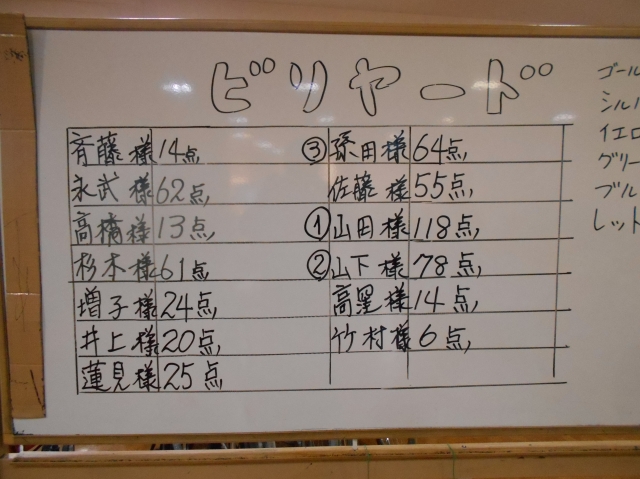 ビリヤード
斉藤様 14点
永武様 62点
高橋様 13点
杉本様 61点
増子様 24点
井上様 20点
蓮見様 25点
③ 孫田様 64点
佐藤様 55点
① 山田様 118点
② 山下様 78点
高星様 14点
竹村様 6点
ゴール
シル
イエロ
グリー
ブル
レット